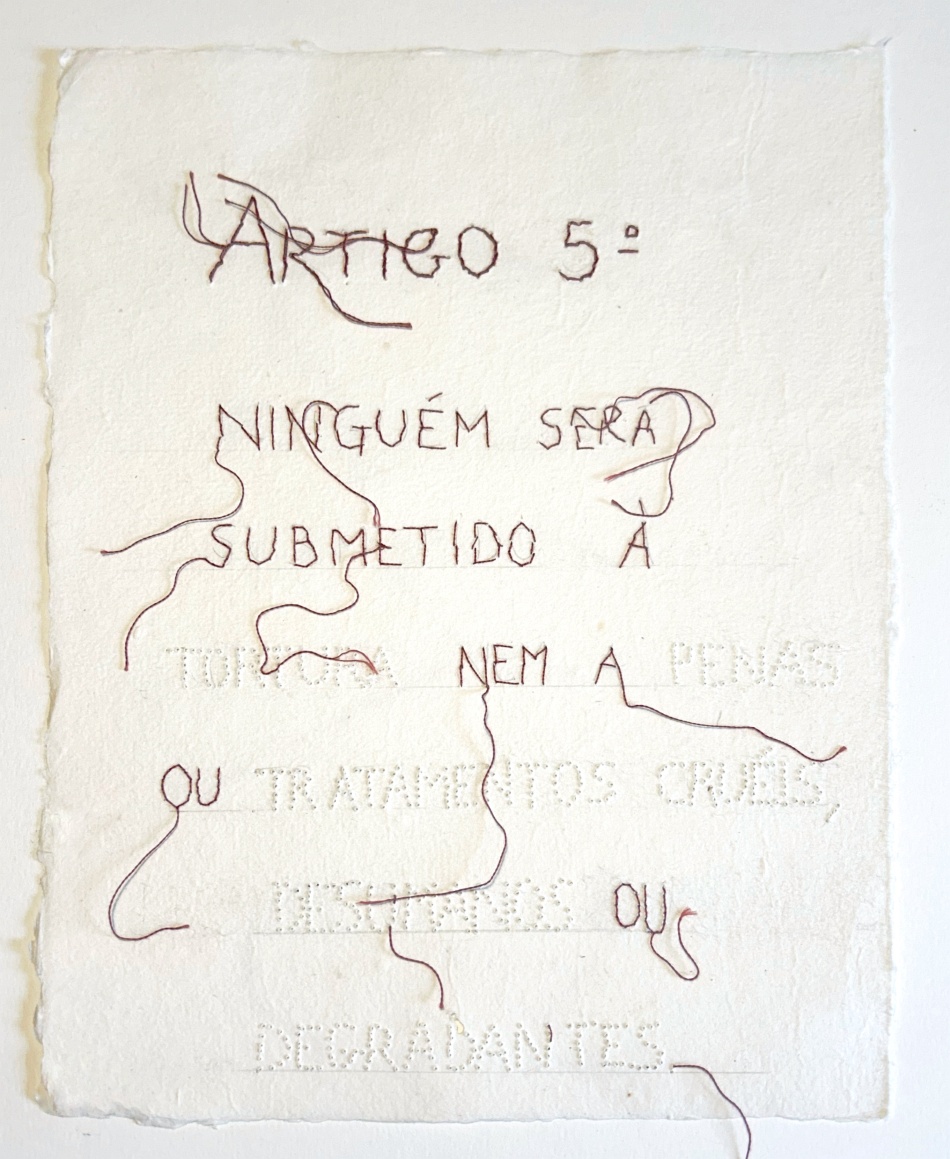 ARTIGO 5º
NINGUÉM SERÁ
SUBMETIDO Á
TORTURA NEM A PENAS
OU TRATAMENTOS CRUÉIS,
DESUMANOS OU
DEGRADANTES.